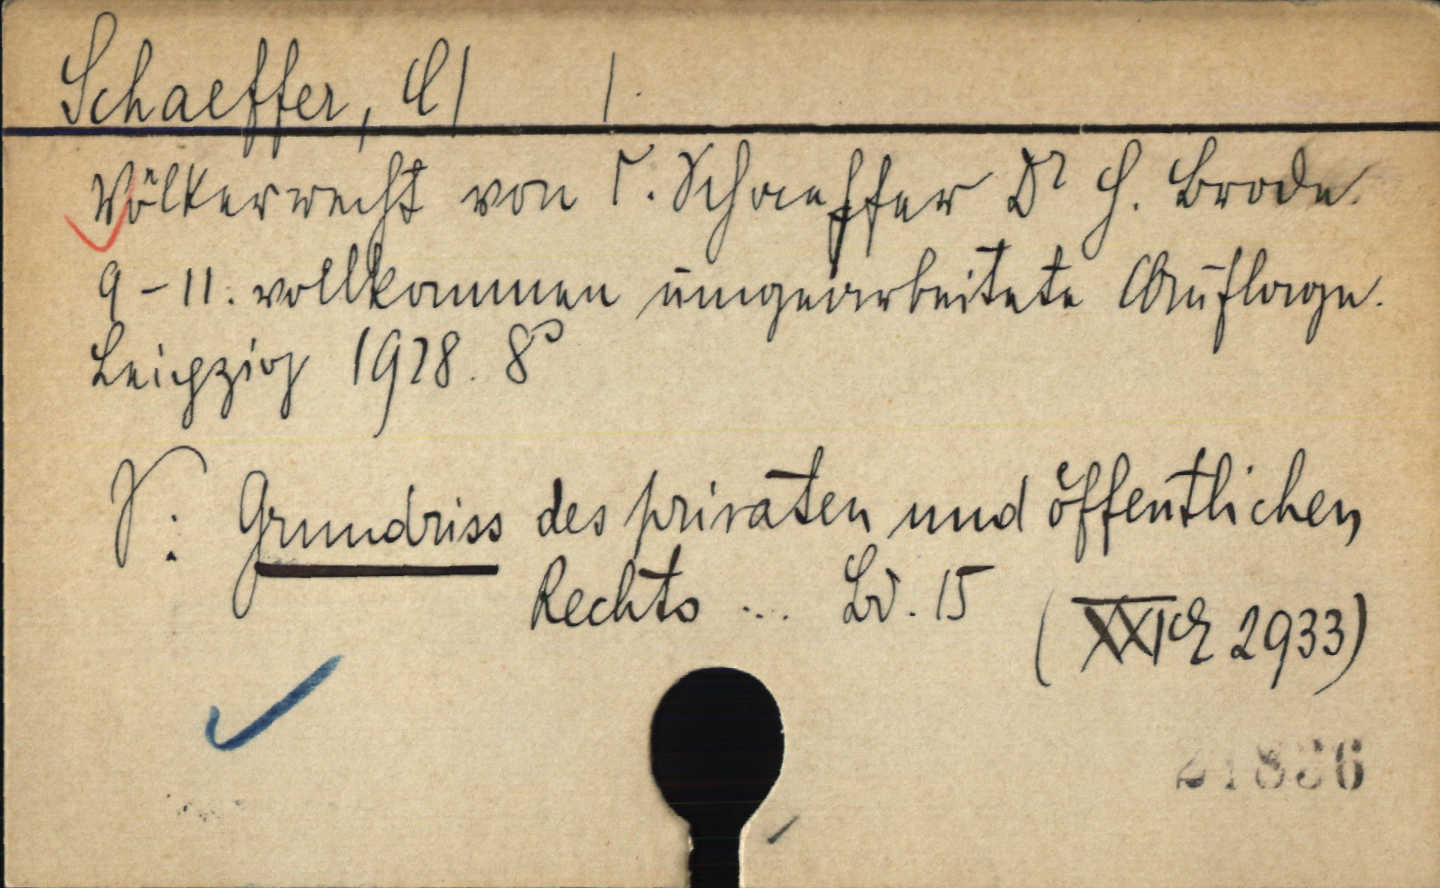 Schaeffer, C| 1.
Völkerrecht von C. Schaeffer Dr H. Brode.
9-11. vollkommen umgearbeitete Auflage.
Leipzig 1928. 8°
V: Grundriss des privaten und öffentlichen
Rechts ... Bd. 15
(XXI 2933)